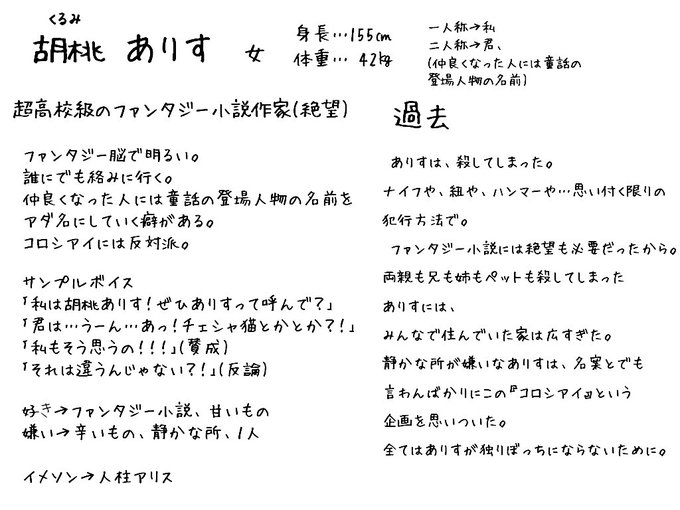 くるみ
胡桃 ありす 女
身長…155cm
体重…42kg
一人称→私
二人称→君、
(仲良くなった人には童話の
登場人物の名前)
超高校級のファンタジー小説作家(絶望)
ファンタジー脳で明るい。
誰にでも絡みに行く。
仲良くなった人には童話の登場人物の名前を
アダ名にしていく癖がある。
コロシアイには反対派。
サンプルボイス
「私は胡桃ありす!ぜひありすって呼んで?」
「君は…うーん…あっ!チェシャ猫とかとか?!」
「私もそう思うの!!!」(賛成)
「それは違うんじゃない?!」(反論)
好き→ファンタジー小説、甘いもの
嫌い→辛いもの、静かな所、1人
イメソン→人柱アリス
過去
ありすは、殺してしまった。
ナイフや、紐や、ハンマーや…思い付く限りの
犯行方法で。
ファンタジー小説には絶望も必要だったから。
両親も兄も姉もペットも殺してしまった
ありすには、
みんなで住んでいた家は広すぎた。
静かな所が嫌いなありすは、名案とでも
言わんばかりにこの『コロシアイ』という
企画を思いついた。
全てはありすが独りぼっちにならないために。